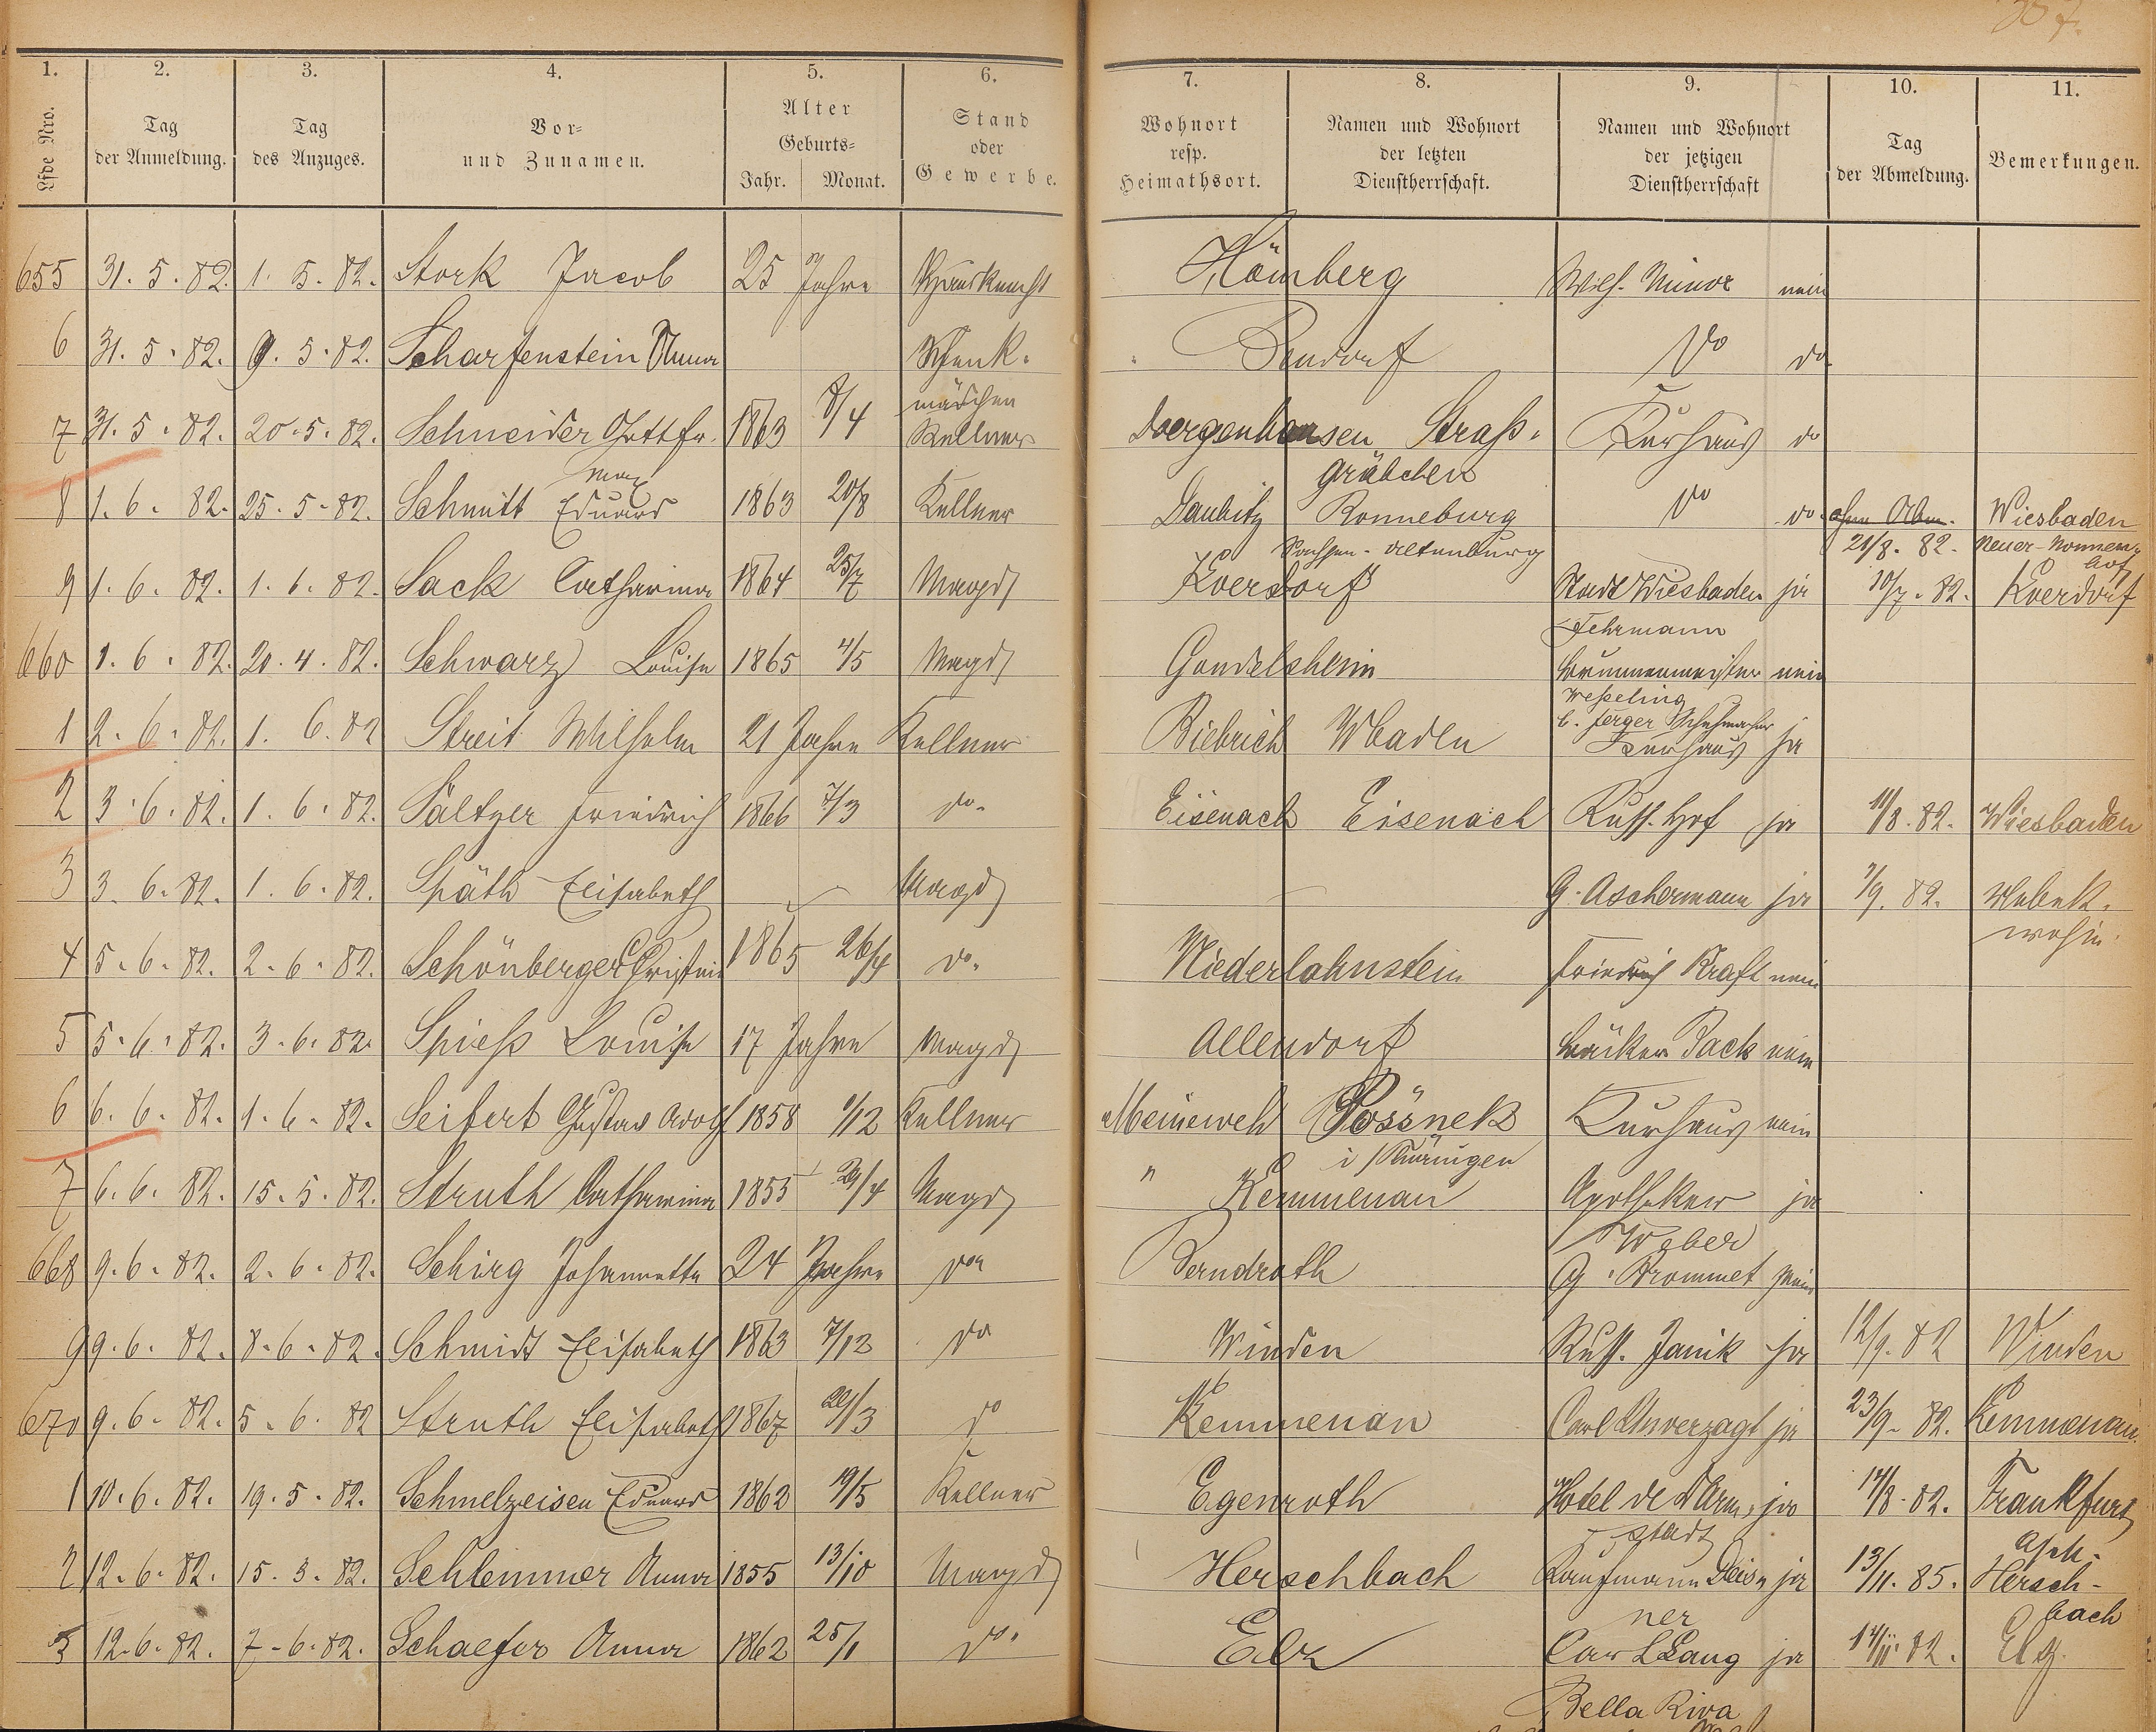 1. 2. 3. 4. 5. 6. 7. 8. 9. 10. 11.
Lfde Nro. Tag der Anmeldung. Tag des Anzuges. Vor- und Zunamen. Alter Geburts- Jahr. Monat. Stand oder Gewerbe. Wohnort resp. Heimathsort. Namen und Wohnort der letzten Dienstherrschaft. Namen und Wohnort der jetzigen Dienstherrschaft Tag der Abmeldung. Bemerkungen.
655 31. 5. 82. 1. 5. 82. Stork Jacob 25 Jahre Hausknecht Hömberg Wilh. Minor nein
6 31. 5. 82. 9. 5. 82. Scharfenstein Anna Schenk- Dendorf do do
mädchen
7 31. 5. 82. 20. 5. 82. Schneider Gottfr. 1863 8/4 Kellner Doergenhausen Straß- Kurhaus do
gräbchen
Max
8 1. 6. 82. 25. 5. 82. Schmitt Eduard 1863 20/8 Kellner Daubitz Ronneburg do do ohne Abm. Wiesbaden
Sachsen-Altenburg 21/8. 82. Neuer-Nonnen-
hof
9 1. 6. 82. 1. 6. 82. Sack Catharina 1864 25/7 Magd Eversdorf Stadt Wiesbaden ja 10/7. 82. Everdorf
Fehrmann
660 1. 6. 82. 20. 4. 82. Schwarz Louise 1865 4/5 Magd Gondelsheim Brunnenmeister nein
Wesseling
b. Jerger Schuhmacher
1 2. 6. 82. 1. 6. 82 Streit Wilhelm 21 Jahre Kellner Biebrich Wbaden Kurhaus ja
2 3. 6. 82. 1. 6. 82. Sältzer Friedrich 1866 7/3 do. Eisenach Eisenach Russ. Hof ja 11/8. 82. Wiesbaden
3 3. 6. 82. 1. 6. 82. Späth Elisabeth Magd G. Aschermann ja 7/9. 82. Unbek.
wohin.
4 5. 6. 82. 2. 6. 82. Schönberger Christine 1865 26/4 do. Niederlahnstein Friedrich Kraft nein
5 5. 6. 82. 3. 6. 82. Spieß Louise 17 Jahre Magd Allendorf Bäcker Pack nein
6 6. 6. 82. 1. 6. 82. Seifert Gustav Adolf 1858 1/12 Kellner Meineweh Pössnek Kurhaus nein
i/Thüringen
7 6. 6. 82. 15. 5. 82. Struth Catharina 1855 29/4 Magd " Kemmenau Apotheker ja
Weber
668 9. 6. 82. 2. 6. 82. Schirg Johannetta 24 Jahre do Berndroth G. Brommet nein
9 9. 6. 82. 8. 6. 82. Schmidt Elisabeth 1863 7/12 do Winden Russ. Janik ja 12/9. 82 Winden
670 9. 6. 82. 5. 6. 82 Struth Elisabeth 1867 22/3 do Kemmenau Carl Unverzagt ja 23/9. 82. Kemmenau.
1 10. 6. 82. 19. 5. 82. Schmelzeisen Eduard 1862 19/5 Kellner Egenroth Hotel de Darm- ja 14/8. 82. Frankfurt
stadt
2 12. 6. 82. 15. 3. 82. Schlemmer Anna 1855 13/10 Magd Herschbach Kaufmann Deis- ja 13/11. 85. Hersch-
ner bach
3 12. 6. 82. 7. 6. 82. Schaefer Anna 1862 25/1 do. Elz Carl Lang ja 14/11. 82. Elz.
Bella Riva